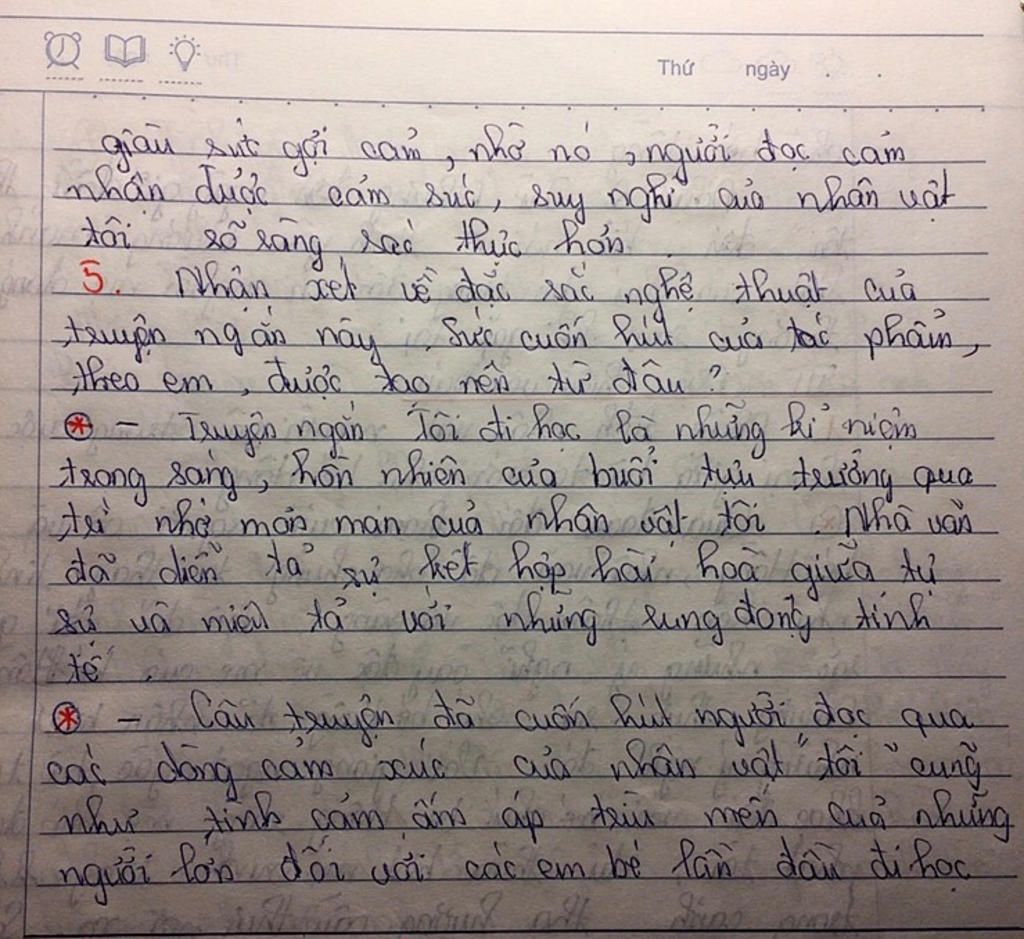 Thứ ngày
giàu sức gợi cảm, nhờ nó, người đọc cảm
nhận được cảm xúc, suy nghĩ của nhân vật
tôi số sàng sác thực hơn.
5. Nhận xét về đặc sắc nghệ thuật của
truyện ngắn này. Sức cuốn hút của tác phẩm,
theo em, được tạo nên từ đâu?
* - Truyện ngắn Tôi đi học là những kỉ niệm
trong sáng, hồn nhiên của buổi tựu trường qua
trí nhớ mơn man của nhân vật tôi. Nhà văn
đã diễn tả sự kết hợp hài hoà giữa tự
sự và miêu tả với những rung động tinh
tế.
* - Câu truyện đã cuốn hút người đọc qua
các dòng cảm xúc của nhân vật "tôi" cũng
như tình cảm ấm áp trìu mến của những
người lớn đối với các em bé lần đầu đi học